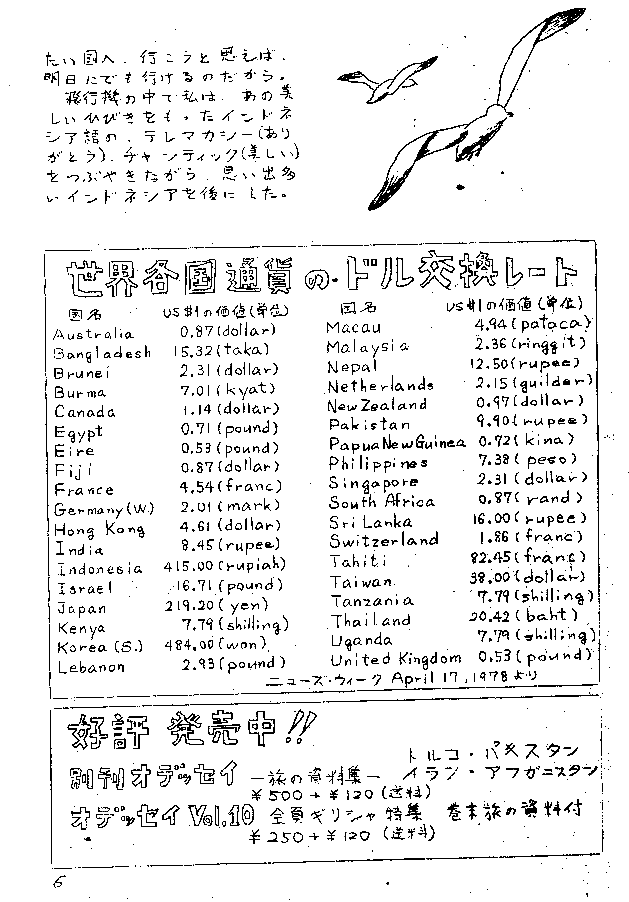 たい国へ、行こうと思えば、
明日にでも行けるのだから。
飛行機の中で私は、あの美
しいひびきをもったインドネ
シア語の、テレマカシー(あり
がとう)、チャンティック(美しい)
をつぶやきながら、思い出多
いインドネシアを後にした。
世界各国通貨の・ドル交換レート
国名 US$1の価値(単位)
Australia 0.87(dollar)
Bangladesh 15.32(taka)
Brunei 2.31(dollar)
Burma 7.01(kyat)
Canada 1.14(dollar)
Egypt 0.71(pound)
Eire 0.53(pound)
Fiji 0.87(dollar)
France 4.54(franc)
Germany(W.) 2.01(mark)
Hong Kong 4.61(dollar)
India 8.45(rupee)
Indonesia 415.00(rupiah)
Israel 16.71(pound)
Japan 219.20(yen)
Kenya 7.79(shilling)
Korea(S.) 484.00(won)
Lebanon 2.93(pound)
国名 US$1の価値(単位)
Macau 4.94(pataca)
Malaysia 2.36(ringgit)
Nepal 12.50(rupee)
Netherlands 2.15(guilder)
New Zealand 0.97(dollar)
Pakistan 9.90(rupee)
Papua New Guinea 0.72(kina)
Philippines 7.38(peso)
Singapore 2.31(dollar)
South Africa 0.87(rand)
Sri Lanka 16.00(rupee)
Switzerland 1.86(franc)
Tahiti 82.45(franc)
Taiwan 38.00(dollar)
Tanzania 7.79(shilling)
Thailand 20.42(baht)
Uganda 7.79(shilling)
United Kingdom 0.53(pound)
ニューズ・ウィーク April 17, 1978より
好評 発売中!!
別刊オデッセイ ―旅の資料集― トルコ・パキスタン
イラン・アフガニスタン
¥500+¥120(送料)
オデッセイVol.10 全頁ギリシャ特集 巻末旅の資料付
¥250+¥120(送料)
6